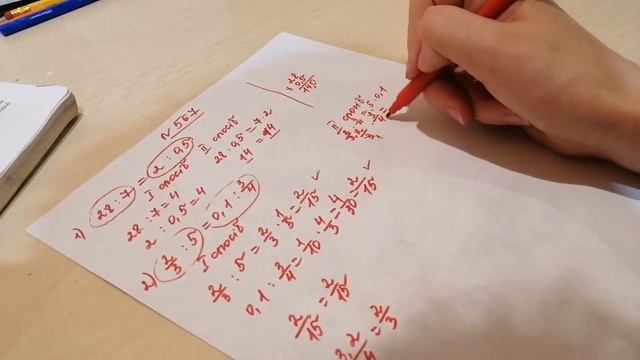 N 567
1) 28 : 7 = 2 : 0,5
I спосіб
28 : 7 = 4
2 : 0,5 = 4
II спосіб
28 · 0,5 = 7 · 2
14 = 14
28
× 0,5
140
2) 2/3 : 5 = 0,1 : 3/4
I спосіб
2/3 : 5 = 2/3 · 1/5 = 2/15 ✓
0,1 : 3/4 = 1/10 · 4/3 = 4/30 = 2/15 ✓
2/15 = 2/15
II спосіб